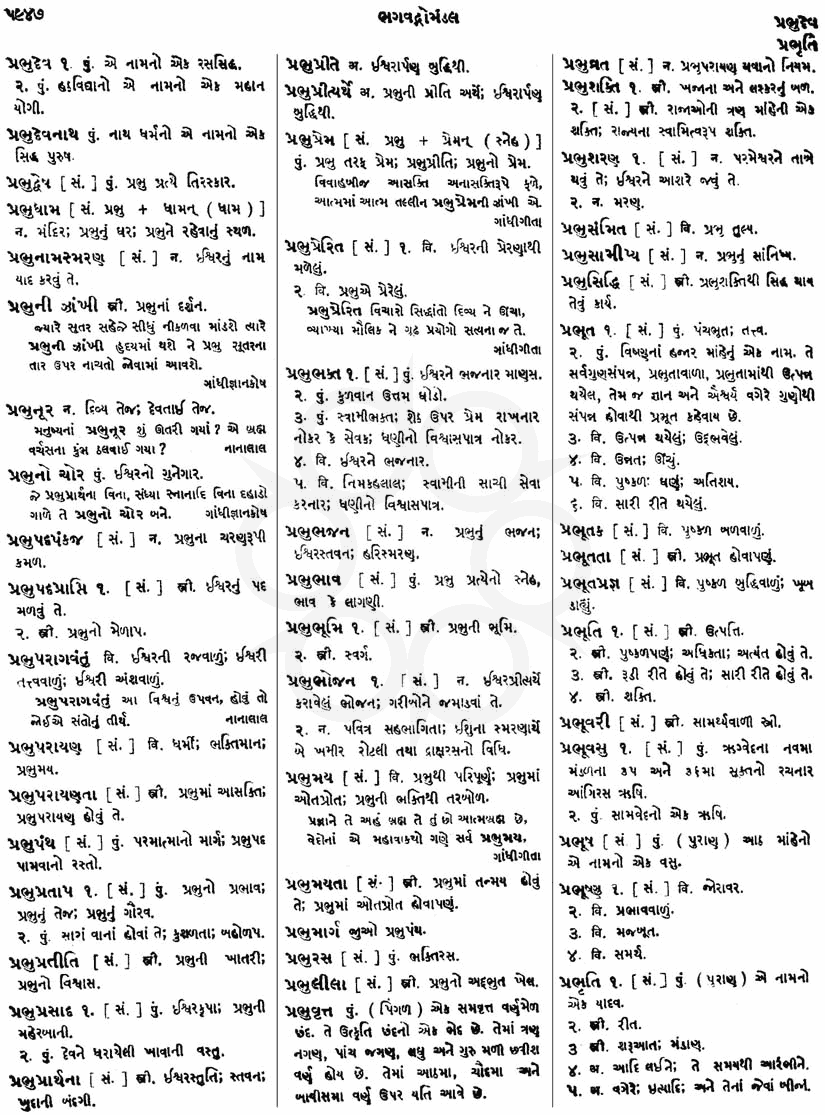 ૫૯૪૭
ભગવદ્ગોમંડલ
પ્રભુદેવ
પ્રભૃતિ
પ્રભુદેવ ૧. પું. એ નામનો એક રસસિદ્ધ.
૨. પું. હઠવિદ્યાનો એ નામનો એક મહાન
યોગી.
પ્રભુદેવનાથ પું. નાથ ધર્મનો એ નામનો એક
સિદ્ધ પુરુષ.
પ્રભુદ્વેષ [ સં. ] પું. પ્રભુ પ્રત્યે તિરસ્કાર.
પ્રભુધામ [ સં. પ્રભુ + ધામન્ ( ધામ ) ]
ન. મંદિર; પ્રભુનું ઘર; પ્રભુને રહેવાનું સ્થળ.
પ્રભુનામસ્મરણ [ સં. ] ન. ઈશ્વરનું નામ
યાદ કરવું તે.
પ્રભુની ઝાંખી સ્ત્રી. પ્રભુનાં દર્શન.
જ્યારે સુતર સહેજે સીધું નીકળવા માંડશે ત્યારે
પ્રભુની ઝાંખી હૃદયમાં થશે ને પ્રભુ સૂતરના
તાર ઉપર નાચતો જોવામાં આવશે.
ગાંધીજ્ઞાનકોષ
પ્રભુનૂર ન. દિવ્ય તેજ; દેવતાઈ તેજ.
મનુષ્યનાં પ્રભુનૂર શું ઊતરી ગયાં ? એ બ્રહ્મ
વર્ચસના કુંભ ઠલવાઈ ગયા ? નાનાલાલ
પ્રભુનો ચોર પું. ઈશ્વરનો ગુનેગાર.
જે પ્રભુપ્રાર્થના વિના, સંધ્યા સ્નાનાદિ વિના દહાડો
ગાળે તે પ્રભુનો ચોર બને. ગાંધીજ્ઞાનકોષ
પ્રભુપદપંકજ [ સં. ] ન. પ્રભુના ચરણરૂપી
કમળ.
પ્રભુપદપ્રાપ્તિ ૧. [ સં. ] સ્ત્રી. ઈશ્વરનું પદ
મળવું તે.
૨. સ્ત્રી. પ્રભુનો મેળાપ.
પ્રભુપરાગવંતું વિ. ઈશ્વરની રજવાળું; ઈશ્વરી
તત્ત્વવાળું; ઈશ્વરી અંશવાળું.
પ્રભુપરાગવંતું આ વિશ્વનું ઉપવન, હોવું તો
જોઈએ સંતોનું તીર્થ. નાનાલાલ
પ્રભુપરાયણ [ સં. ] વિ. ધર્મી; ભક્તિમાન;
પ્રભુમય.
પ્રભુપરાયણતા [ સં. ] સ્ત્રી. પ્રભુમાં આસક્તિ;
પ્રભુપરાયણ હોવું તે.
પ્રભુપંથ [ સં. ] પું. પરમાત્માનો માર્ગ; પ્રભુપદ
પામવાનો રસ્તો.
પ્રભુપ્રતાપ ૧. [ સં. ] પું. પ્રભુનો પ્રભાવ;
પ્રભુનું તેજ; પ્રભુનું ગૌરવ.
૨. પું. સારાં વાનાં હોવાં તે; કુશળતા; બહોળપ.
પ્રભુપ્રતીતિ [ સં. ] સ્ત્રી. પ્રભુની ખાતરી;
પ્રભુનો વિશ્વાસ.
પ્રભુપ્રસાદ ૧. [ સં. ] પું. ઈશ્વરકૃપા; પ્રભુની
મહેરબાની.
૨. પું. દેવને ધરાયેલી ખાવાની વસ્તુ.
પ્રભુપ્રાર્થના [ સં. ] સ્ત્રી. ઈશ્વરસ્તુતિ; સ્તવન;
ખુદાની બંદગી.
પ્રભુપ્રીતે અ. ઈશ્વરાર્પણ બુદ્ધિથી.
પ્રભુપ્રીત્યર્થે અ. પ્રભુની પ્રીતિ અર્થે; ઈશ્વરાર્પણ
બુદ્ધિથી.
પ્રભુપ્રેમ [ સં. પ્રભુ + પ્રેમન્ ( સ્નેહ ) ]
પું. પ્રભુ તરફ પ્રેમ; પ્રભુપ્રીતિ; પ્રભુનો પ્રેમ.
વિવાહબીજ આસક્તિ અનાસક્તિરૂપે ફળે,
આત્મમાં આત્મ તલ્લીન પ્રભુપ્રેમની ઝાંખી એ.
ગાંધીગીતા
પ્રભુપ્રેરિત [ સં. ] ૧. વિ. ઈશ્વરની પ્રેરણાથી
મળેલું.
૨. વિ. પ્રભુએ પ્રેરેલું.
પ્રભુપ્રેરિત વિચારો સિદ્ધાંતો દિવ્ય ને ઊંચા,
વ્યાખ્યા મૌલિક ને ગૂઢ પ્રયોગો સત્યના જ તે.
ગાંધીગીતા
પ્રભુભક્ત ૧. [ સં. ] પું. ઈશ્વરને ભજનાર માણસ.
૨. પું. કુળવાન ઉત્તમ ઘોડો.
૩. પું. સ્વામીભક્ત; શેઠ ઉપર પ્રેમ રાખનાર
નોકર કે સેવક; ધણીનો વિશ્વાસપાત્ર નોકર.
૪. વિ. ઈશ્વરને ભજનાર.
૫. વિ. નિમકહલાલ; સ્વામીની સાચી સેવા
કરનાર; ધણીનો વિશ્વાસપાત્ર.
પ્રભુભજન [ સં. ] ન. પ્રભુનું ભજન;
ઈશ્વરસ્તવન; હરિસ્મરણ.
પ્રભુભાવ [ સં. ] પું. પ્રભુ પ્રત્યેનો સ્નેહ,
ભાવ કે લાગણી.
પ્રભુભૂમિ ૧. [ સં. ] સ્ત્રી. પ્રભુની ભૂમિ.
૨. સ્ત્રી. સ્વર્ગ.
પ્રભુભોજન ૧. [ સં. ] ન. ઈશ્વરપ્રીત્યર્થે
કરાવેલું ભોજન; ગરીબોને જમાડવાં તે.
૨. ન. પવિત્ર સહભાગિતા; ઈશુના સ્મરણાર્થે
બે ખમીર રોટલી તથા દ્રાક્ષરસનો વિધિ.
પ્રભુમય [ સં. ] વિ. પ્રભુથી પરિપૂર્ણ; પ્રભુમાં
ઓતપ્રોત; પ્રભુની ભક્તિથી તરબોળ.
પ્રજ્ઞાને તે અહં બ્રહ્મ તે તું છો આત્મબ્રહ્મ છે,
વેદોનાં એ મહાવાક્યો ગણે સર્વ પ્રભુમય.
ગાંધીગીતા
પ્રભુમયતા [ સં. ] સ્ત્રી. પ્રભુમાં તન્મય હોવું
તે; પ્રભુમાં ઓતપ્રોત હોવાપણું.
પ્રભુમાર્ગ જુઓ પ્રભુપંથ.
પ્રભુરસ [ સં. ] પું. ભક્તિરસ.
પ્રભુલીલા [ સં. ] સ્ત્રી. પ્રભુનો અદ્ભુત ખેલ.
પ્રભુવૃત્ત પું. ( પિંગળ ) એક સમવૃત્ત વર્ણમેળ
છંદ. તે ઉત્કૃતિ છંદનો એક ભેદ છે. તેમાં ત્રણ
નગણ, પાંચ જગણ, લઘુ અને ગુરુ મળી છવીશ
વર્ણ હોય છે. તેમાં આઠમા, ચૌદમા અને
બાવીસમા વર્ણ ઉપર યતિ આવે છે.
પ્રભુવ્રત [ સં. ] ન. પ્રભુપરાયણ થવાનો નિયમ.
પ્રભુશક્તિ ૧. સ્ત્રી. ખજાના અને લશ્કરનું બળ.
૨. [ સં. ] સ્ત્રી. રાજાઓની ત્રણ માંહેની એક
શક્તિ; રાજ્યના સ્વામિત્વરૂપ શક્તિ.
પ્રભુશરણ ૧. [ સં. ] ન. પરમેશ્વરને તાબે
થવું તે; ઈશ્વરને આશરે જવું તે.
૨. ન. મરણ.
પ્રભુસંમિત [ સં. ] વિ. પ્રભુ તુલ્ય.
પ્રભુસામીપ્ય [ સં. ] ન. પ્રભુનું સાંનિધ્ય.
પ્રભુસિદ્ધિ [ સં. ] સ્ત્રી. પ્રભુશક્તિથી સિદ્ધ થાય
તેવું કાર્ય.
પ્રભૂત ૧. [ સં. ] પું. પંચભૂત; તત્ત્વ.
૨. પું. વિષ્ણુનાં હજાર માંહેનું એક નામ. તે
સર્વગુણસંપન્ન, પ્રભુતાવાળા, પ્રભુતામાંથી ઉત્પન્ન
થયેલ, તેમ જ જ્ઞાન અને ઐશ્વર્ય વગેરે ગુણોથી
સંપન્ન હોવાથી પ્રભૂત કહેવાય છે.
૩. વિ. ઉત્પન્ન થયેલું; ઉદ્ભવેલું.
૪. વિ. ઉન્નત; ઊંચું.
૫. વિ. પુષ્કળ; ઘણું; અતિશય.
૬. વિ. સારી રીતે થયેલું.
પ્રભૂતક [ સં. ] વિ. પુષ્કળ બળવાળું.
પ્રભૂતતા [ સં. ] સ્ત્રી. પ્રભૂત હોવાપણું.
પ્રભૂતપ્રજ્ઞ [ સં. ] વિ. પુષ્કળ બુદ્ધિવાળું; ખૂબ
ડાહ્યું.
પ્રભૂતિ ૧. [ સં. ] સ્ત્રી. ઉત્પત્તિ.
૨. સ્ત્રી. પુષ્કળપણું; અધિકતા; અત્યંત હોવું તે.
૩. સ્ત્રી. રૂડી રીતે હોવું તે; સારી રીતે હોવું તે.
૪. સ્ત્રી. શક્તિ.
પ્રભૂવરી [ સં. ] સ્ત્રી. સામર્થ્યવાળી સ્ત્રી.
પ્રભૂવસુ ૧. [ સં. ] પું. ઋગ્વેદના નવમા
મંડળના ૩૫ અને ૩૬મા સૂક્તનો રચનાર
આંગિરસ ઋષિ.
૨. પું. સામવેદનો એક ઋષિ.
પ્રભૂષ [ સં. ] પું. ( પુરાણ ) આઠ માંહેનો
એ નામનો એક વસુ.
પ્રભૂષ્ણુ ૧. [ સં. ] વિ. જોરાવર.
૨. વિ. પ્રભાવવાળું.
૩. વિ. મજબૂત.
૪. વિ. સમર્થ.
પ્રભૃતિ ૧. [ સં. ] પું. ( પુરાણ ) એ નામનો
એક યાદવ.
૨. સ્ત્રી. રીત.
૩ સ્ત્રી. શરૂઆત; મંડાણ.
૪. અ. આદિ લઈને; તે સમયથી આરંભીને.
૫. અ. વગેરે; ઇત્યાદિ; અને તેનાં જેવાં બીજાં.